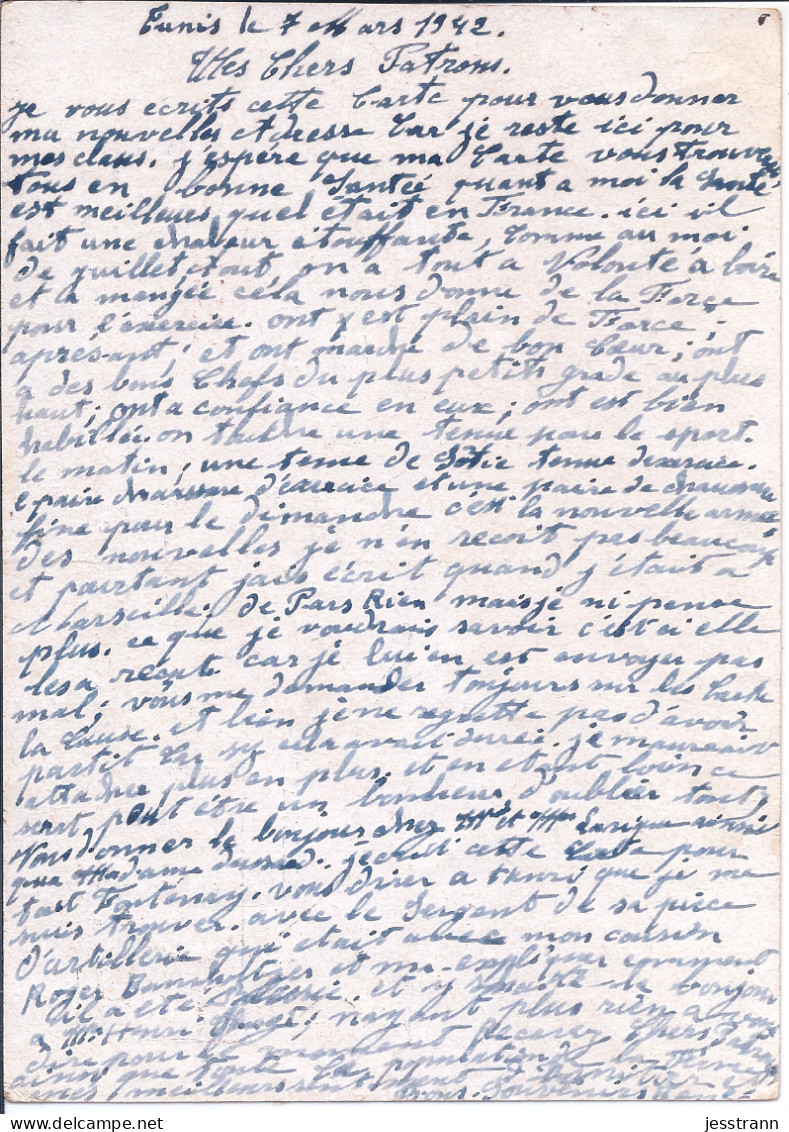 Tunis le 7 Mars 1942.
Mes Chers Patrons.
je vous écrits cette Carte pour vous donner
ma nouvelles adresse Car je reste ici pour
mes class. j'espère que ma Carte vous trouve
tous en bonne Santéé quant a moi la Santé
est meilleure quel était en France. ici il
fait une chaleur étouffante, Comme au moi
de juillet et out, on a tout a Volonté a boire
et a mangée céla nous donne de la Force
pour l'éxercice. ont y est plain de Force,
aprésant; et ont marche de bon Cœur; ont
a des bons Chefs du plus petits grade au plus
haut; ont a confiance en eux; ont est bien
habillée. on touche une tenue pour le sport.
le matin; une tenue de Sortie tenue dexercice.
1 paire chaussure d'éxercice et une paire de chaussure
fine pour le dimanche c'est la nouvelle armée
des nouvelles je n'en recoit pas beaucoup
et pourtant jais écrit quand j'était a
Marseille. de Pars Rien mais je ni pense
plus. ce que je voudrais savoir c'est ci elle
les a recut. car je lui en est envoyer pas
mal; vous me demander toujours sur les Carte
la Cause. et bien je ne regrette pas d'avoir
partit Car sy cela avait durée. je maurait
attachée plus en plus. et en etant loin ce
sert peut être un bonheur d'oublier tout.
Vous donner le bonjour chez Mr et Mme
que Madame j'écrit cette Carte pour
tart Fontenay. vous direr a Henri que je me
suis trouver. avec le Sergent de sa pièce
d'artillerie qui était avec mon cousin
Roger et ma expliquer comment
il a été et y souaite le bonjour
a Mr Henri nayant plus rien a vous
dire pour le moment recevez Chers Patrons
ainsi que toute la population de la Ferme
mes meilleurs sentiment
Souvenirs
jesstrann